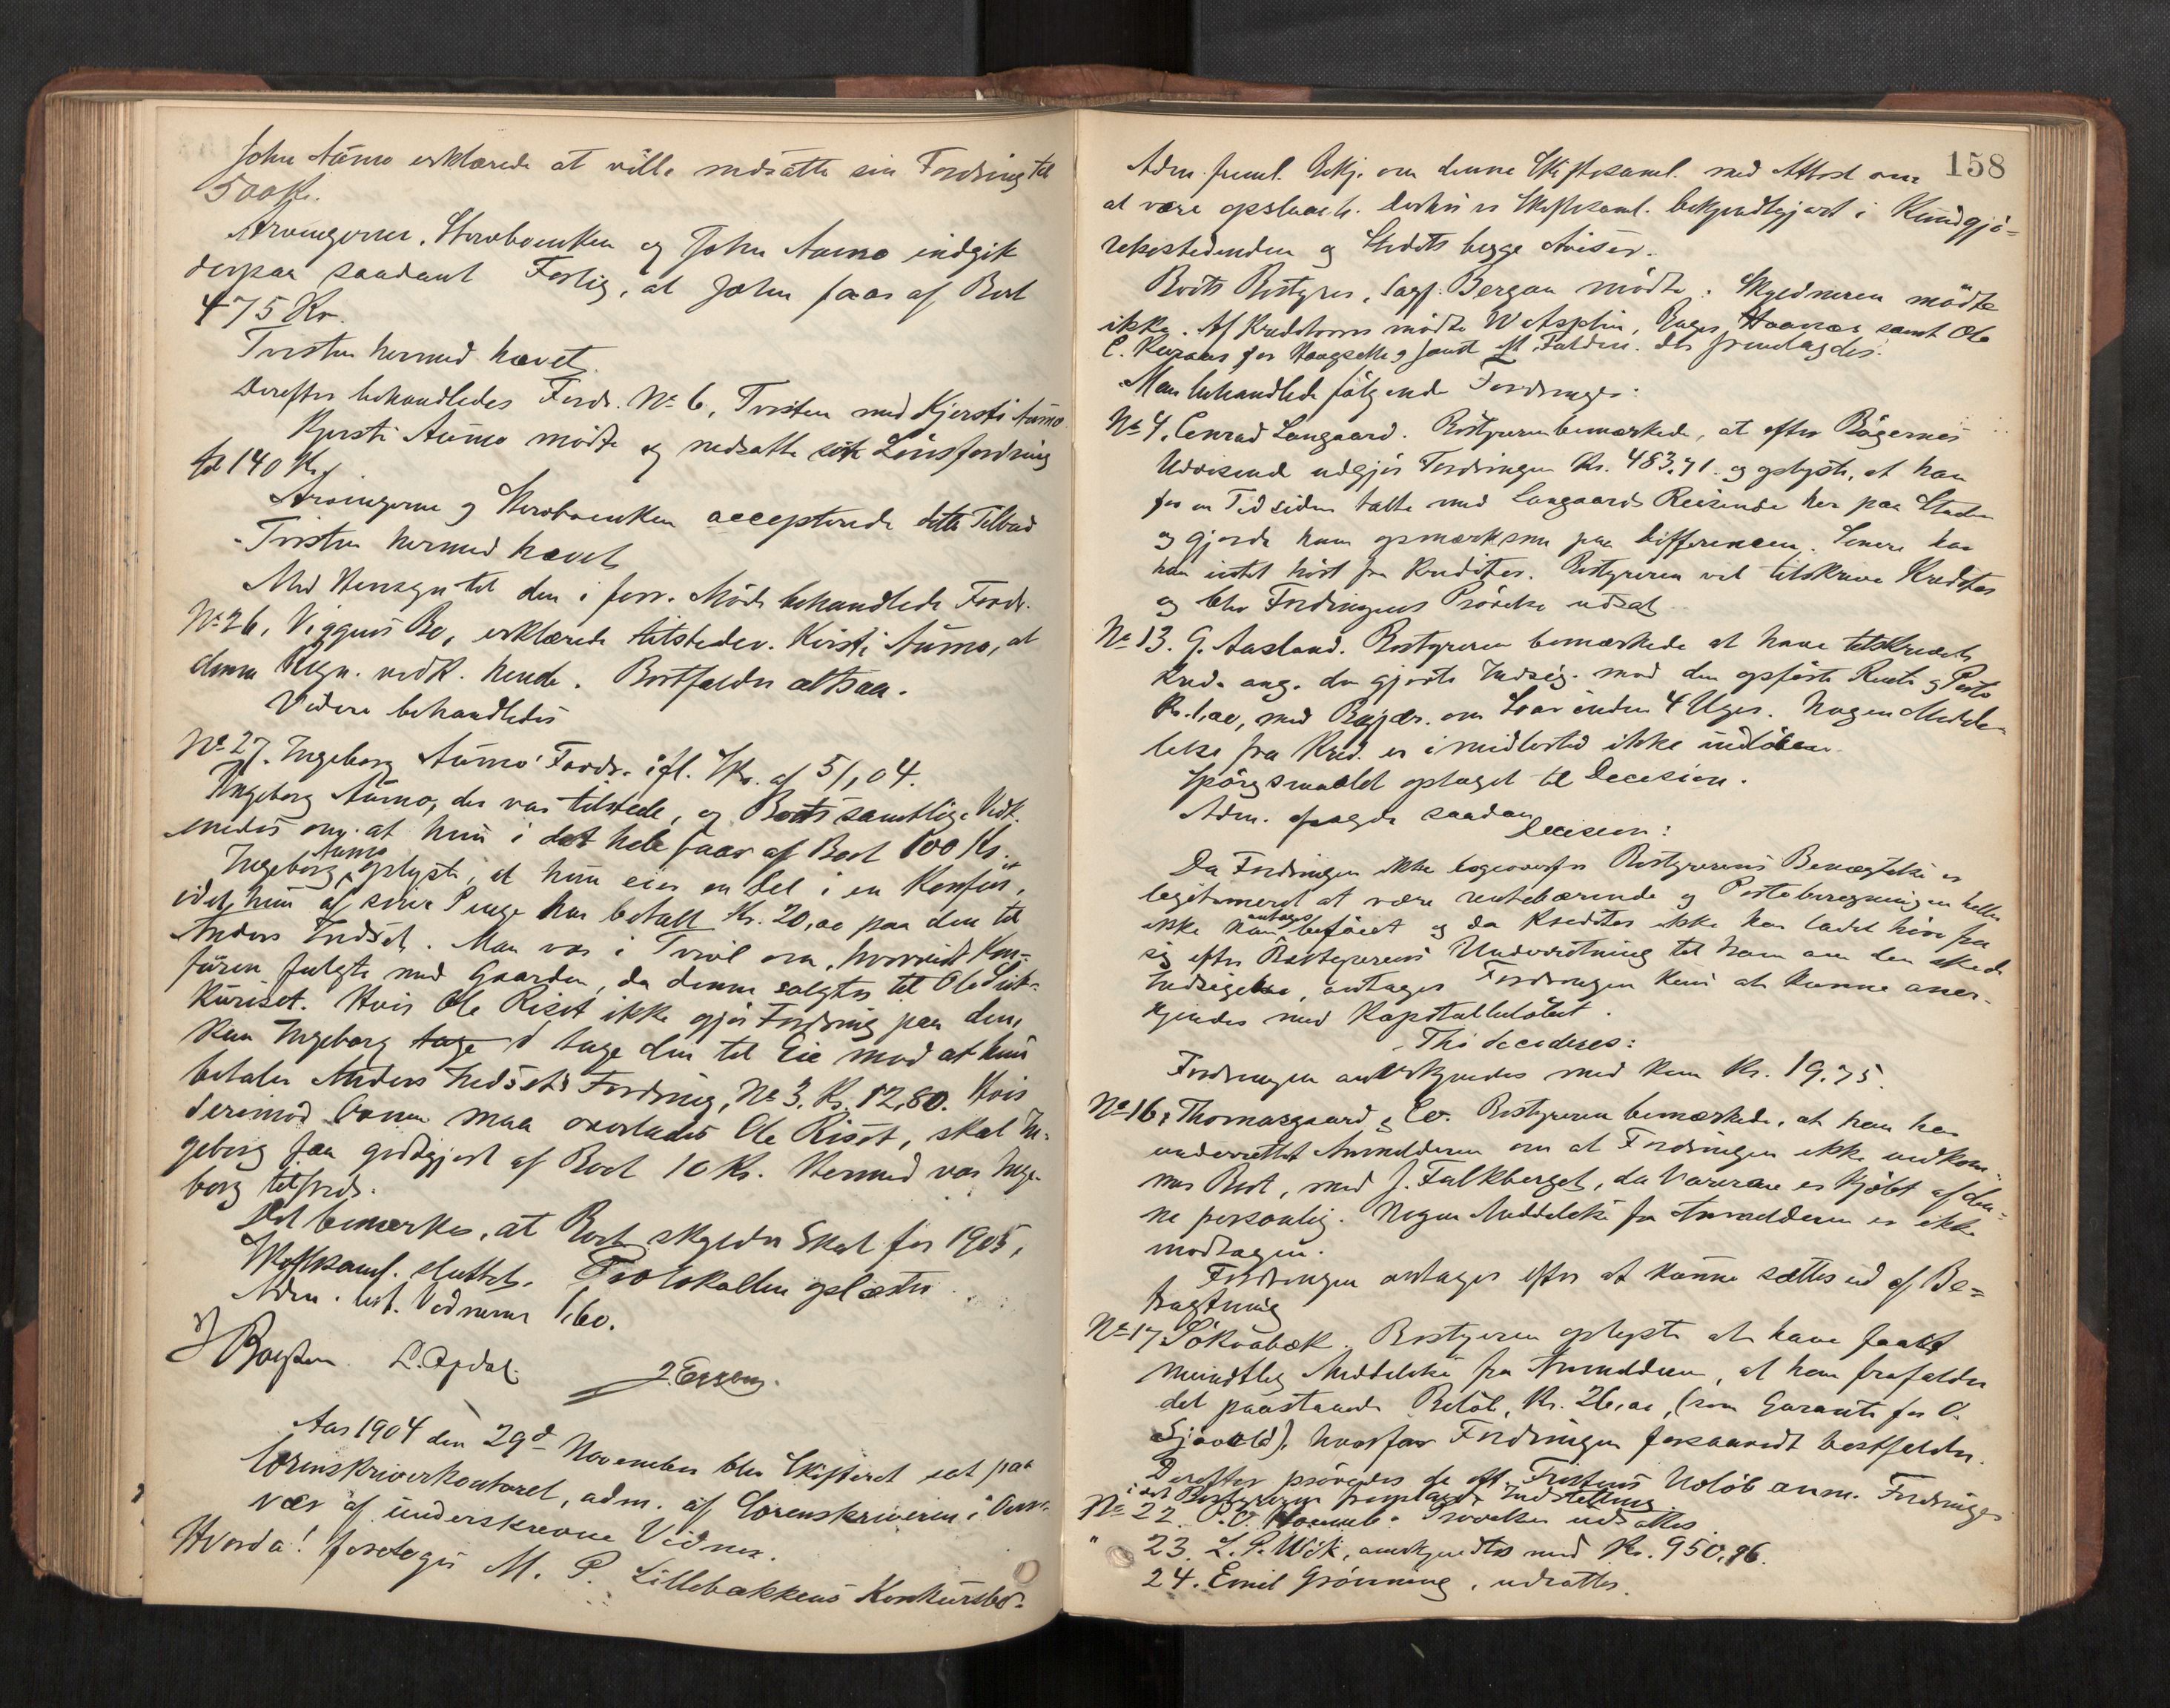 John Aúmo erklærede at ville nedsætte sin Fordring til
500 Kr.
Arvingerne, Stervboenken og John Aúmo indgik
derpaa saadant Forlig, at John faar af Boet
475 Kr.
Tvisten hermed hævet.
Derefter behandledes Fordr. No 6, Tvisten med Kjersti Aúmo.
Kjersti Aúmo mødte og nedsatte sin Lønsfordring
til 140 Kr.
Arvingerne og Stervboenken accepterede dette Tilbud
Tvisten hermed hævet
Med Hensyn til den i forr. Møde behandlede Fordr.
No 26, Viggens Bo, erklærede tilstedev. Kirsti Aúmo, at
denne Regn. vedk. hende. Bortfalder altsaa.
Videre behandledes
No 27. Ingeborg Aúmo' Fordr. ifl. Skr. af 5/1 04.
Ingeborg Aúmo, der var tilstede, og Boets samtlige Vedk.
enedes om at hun i det hele faar af Boet 100 Kr.
Aúmo
Ingeborg oplyste, at hun eier en Del i en Komfur,
idet hun af sine Penge har betalt Kr. 20,00 paa den til
Anders Indset. Man var i Tvivl om, hvorvidt Kom-
furen fulgte med Gaarden, da denne solgtes til Ole
Riset. Hvis Ole Riset ikke gjør Fordring paa den,
kan Ingeborg tage den til Eie mod at hun
betaler Anders Indsets Fordring, No 3. Kr. 12,80. Hvis
derimod Ovnen maa overlades Ole Riset, skal In-
geborg faa godtgjort af Boet 10 Kr. Hermed var Inge-
borg tilfreds.
Det bemerkes, at Boet skylder Skat for 1905,
Skiftesaml. sluttet. Protokollen oplæstes
Adm. bet. Vidnerne 1,60.
L. Opdal.
Aar 1904 den 29d November blev Skifteret sat paa
Sorenskriverkontoret, adm. af Sorenskriveren i Over-
vær af underskrevne Vidner.
Hvorda! foretoges M. P. Lillebakkens Konkursbo.
158
Adm. freml. Bekj. om denne Skiftesaml. med Attest om
at være opslaaet. Derhos er Skiftesaml. bekjendtgjort i Kundgjø-
relsestidenden og Stedets begge Aviser.
Boets Bestyrer, Sagf. Bergan mødte. Skyldneren mødte
ikke. Af Kreditorer mødte samt Ole
for samt der fremlagdes.
Man behandlede følgende Fordringer:
No 4. Conrad Langaard. Bestyreren bemærkede, at efter Bøgernes
Udvisende udgjør Fordringen Kr. 483,71. og oplyste, at han
for en Tid siden talte med Langaards Reisende her paa Stedet
og gjorde ham opmærksom paa Differencen. Senere har
han intet hørt fra Kreditor. Bestyreren vil tilskrive Kreditor
og blev Fordringens Prøvelse udsat
No 13. G. Aasland. Bestyreren bemærkede at have tilskrevet
Kred. ang. den gjorte Indsig. mod den opførte Rente og Porto
Kr. 1,00, med Begjær. om Svar inden 4 Uger. Nogen Medde-
lelse fra Kred. er imidlertid ikke indløben.
Spørgsmaalet optaget til Decision.
Adm. afsagde saadan
Decision:
Da Fordringen ikke ligeoverfor Bestyrerens Benægtelse er
legitimeret at være rentebærende og Portoberegningen heller
antages
ikke kan beføiet og da Kreditor ikke har ladet høre fra
sig efter Bestyrerens Underretning til ham om den skede
Indsigelse, antages Fordringen kun at kunne aner-
kjendes med Kapitalbeløbet.
Thi decideres:
Fordringen anerkjendes med kun Kr. 19,75.
No 16. Thomasgaard & Co. Bestyreren bemærkede, at han har
underrettet Anmelderen om at Fordringen ikke vedkom-
mer Boet, med J. Falkberget, da Varerne er kjøbt af den-
ne personlig. Nogen Meddelelse fra Anmelderen er ikke
modtagen.
Fordringen antages efter at kunne sættes ud af Be-
tragtning
No 17 Søkvabæk. Bestyreren oplyste at have faaet
mundtlig Meddelelse fra Anmelderen, at han frafalder
det paastaaede Beløb, Kr. 26,00, (som Garanti for O.
Sjøvold), hvorfor Fordringen forsaavidt bortfalder.
Derefter prøvedes de eft. Fristens Udløb anm. Fordringer
idet Bestyreren fremlagde Indstilling
No 22. Prøvelsen udsattes
" 23. L. P. Wik, anerkjendtes med Kr. 950,96.
24. Emil Grønning, udsattes.